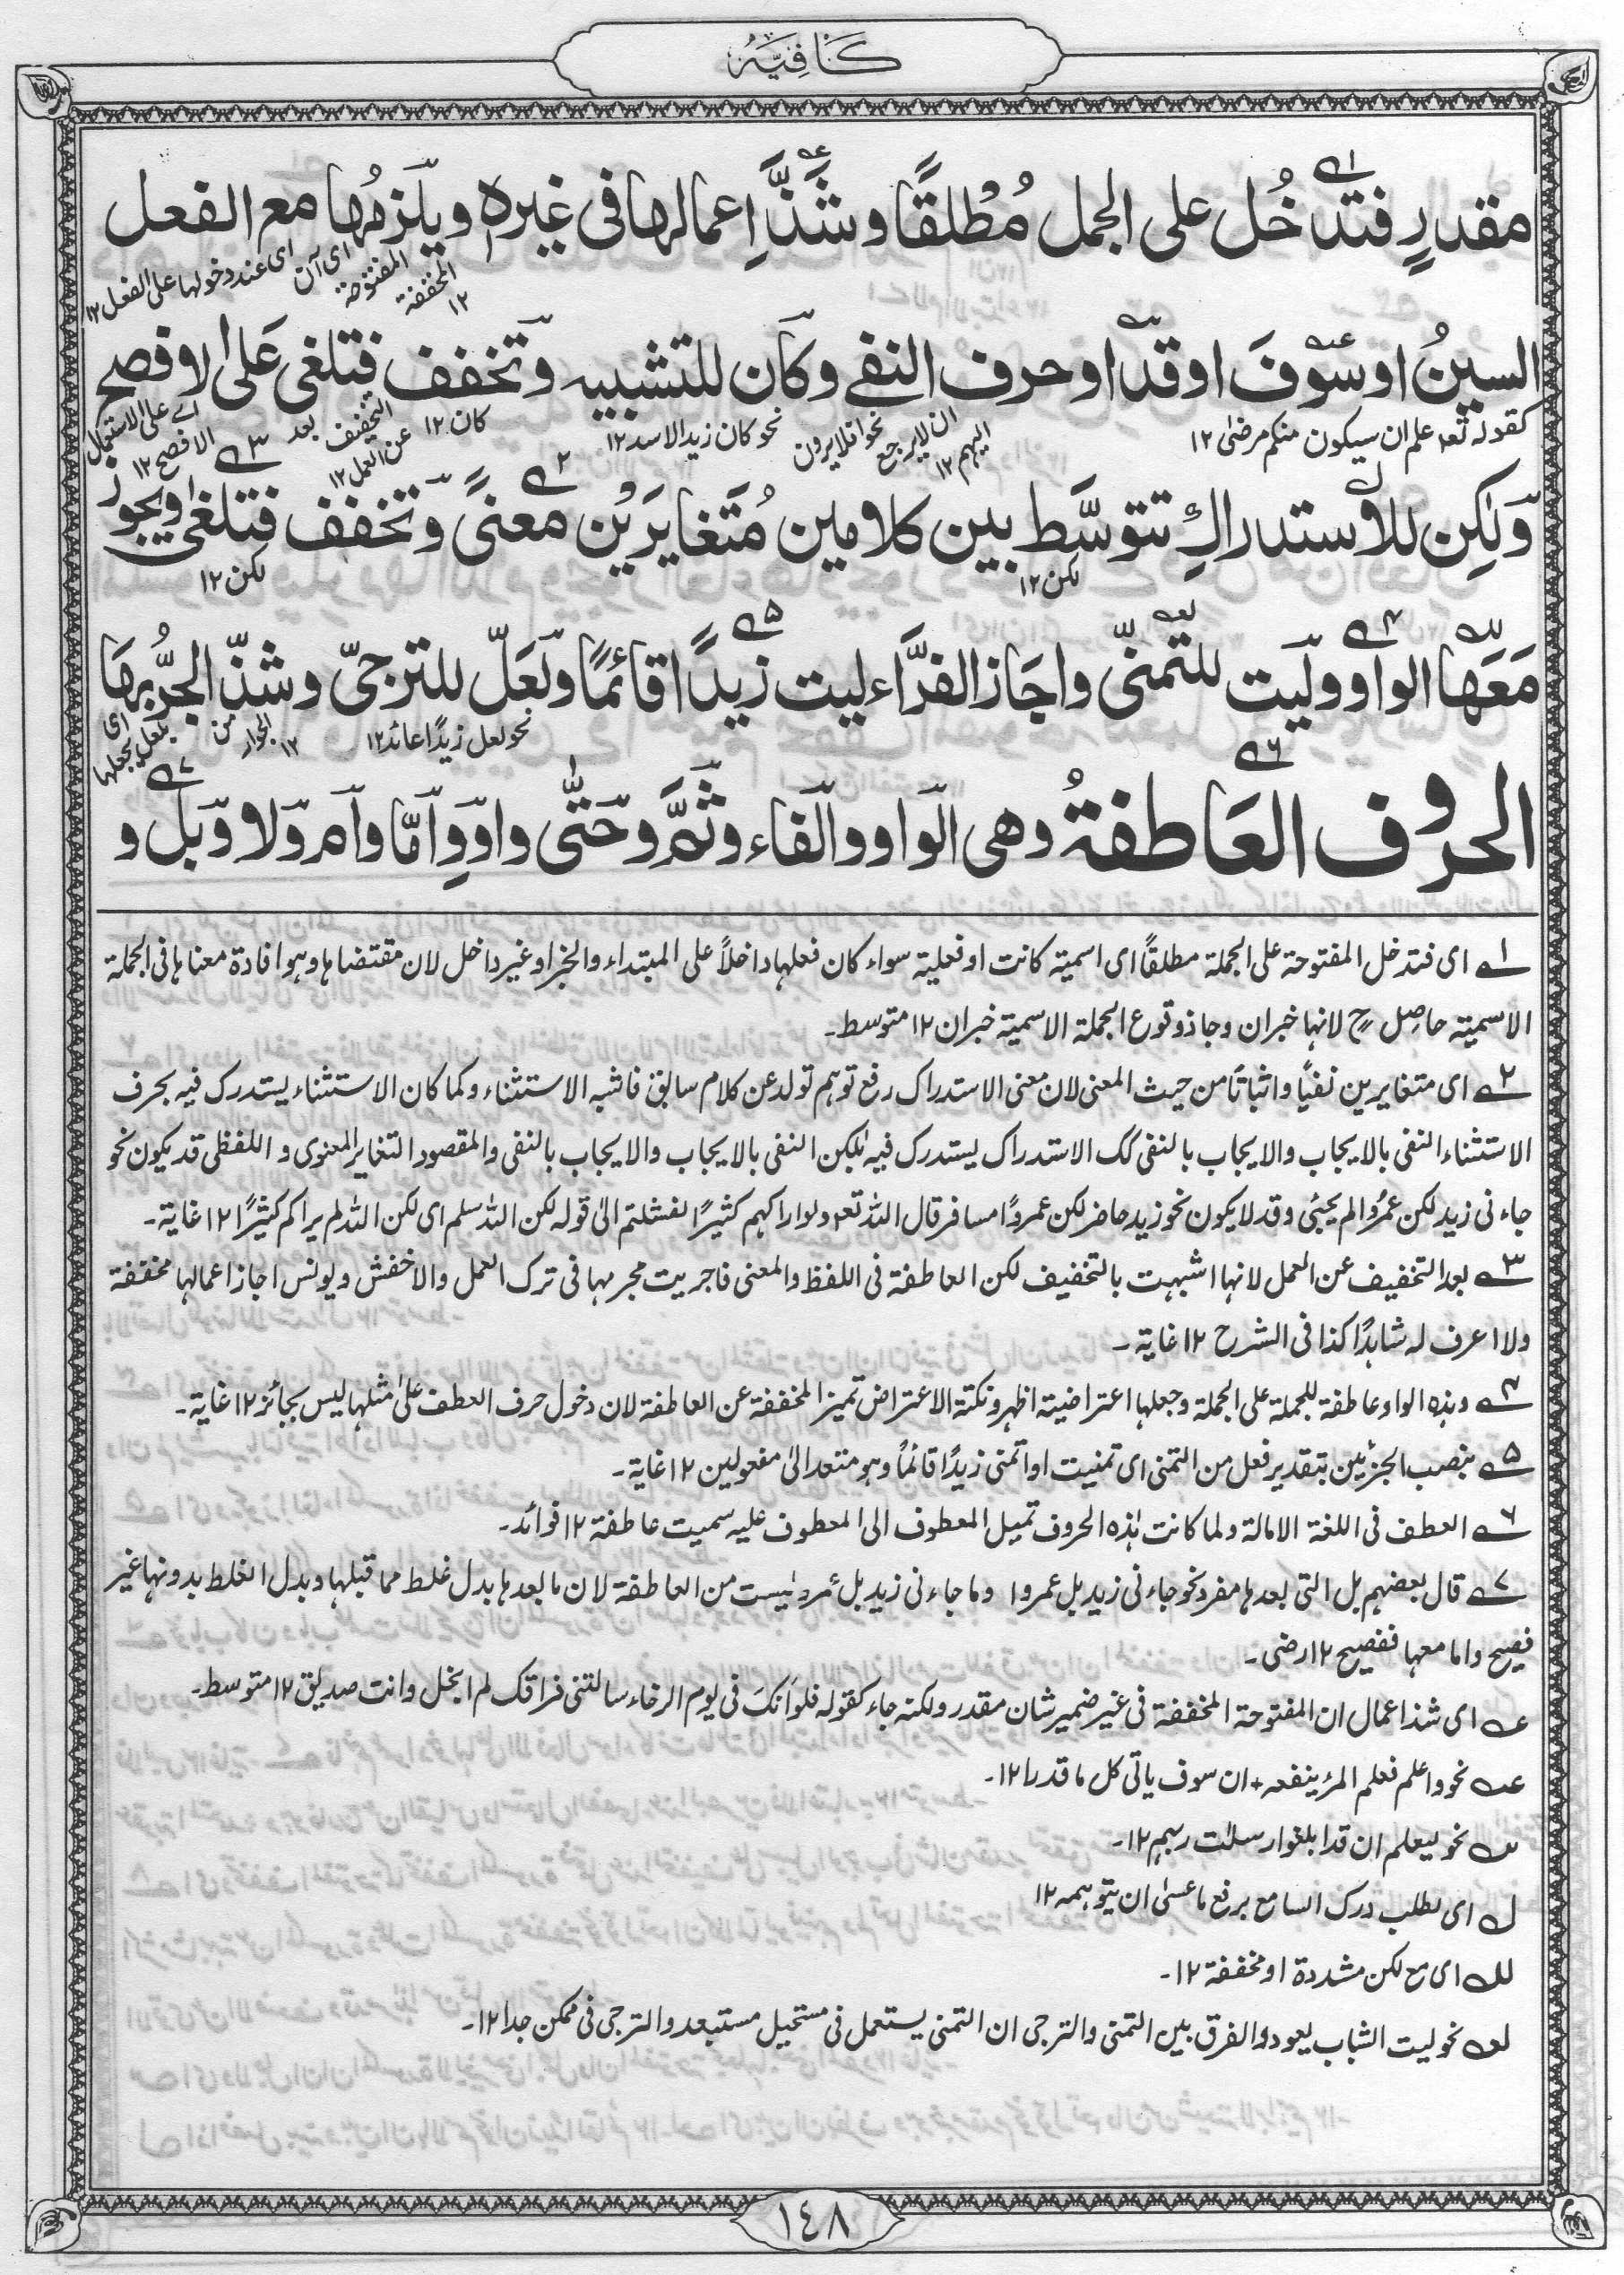 كَافِيَه
مقدرٍ فتدخُل على الجمل مُطْلقًا وشَذَّ اِعمالها فى غيره ويلزمُها مع الفعل
اى آن المفتوحة المخففة ١٢
اى عند دخولها على الفعل ١٢
السينُ او سَوْفَ او قد او حرف النفى وكأن للتشبيه وتخفف فتلغى عَلى الافصح
كقوله تعـ علم ان سيكون منكم مرضىٰ ١٢
نحو افلا يرون ان لا يرجع اليهم ١٢
نحو كان زيد الاسد ١٢
كان ١٢
بعد التخفيف عن العمل ١٢
اے على الاستعمال الافصح ١٢
وَلٰكِن للاستدراكِ تتوسَّط بين كلامين مُتَغايرَيْن معنىً وتخفف فتلغى ويجوز
لكن ١٢
لكن ١٢
مَعَها الواو وليت للتمنّى واجَاز الفرَّاء ليت زيدًا قائمًا ولَعَلّ للترجىّ وشذّ الجرُّ بهَا
نحو لعل زيدًا عائد ١٢
اى بلعل بجعلها من الجوار ١٢
الحروف العَاطفةُ وهى الواو والفاء وثمَّ وحَتّٰى واو وِامّا وام ولا وبل و
١ اى فتدخل المفتوحة على الجملة مطلقاً اى اسمية كانت او فعلية سواء كان فعلها داخلاً على المبتداء والخبر او غير داخل لان مقتضاها وهو افادة معناها فى الجملة
الاسمية حاصل ح لانها خبران وجاز وقوع الجملة الاسمية خبران ١٢ متوسط۔
٢ اى متغايرين نفيًا واثباتًا من حيث المعنى لان معنى الاستدراك رفع توهم تولد عن كلام سابق فاشبه الاستثناء وكما كان الاستثناء يستدرك فيه بحرف
الاستثناء النفى بالايجاب والايجاب بالنفى كك الاستدراك يستدرك فيه بلكن النفى بالايجاب والايجاب بالنفى والمقصود التغاير المعنوى و اللفظى قد يكون نحو
جاءنى زيد لكن عمرًوا لم يجئ وقد لا يكون نحو زيد حاضر لكن عمروًا مسافر قال اللّٰه تعـ ولو اراكهم كثيرًا لفشلتم الىٰ قوله لكن اللّٰه سلم اى لكن اللّٰه لم يراكم كثيرًا ١٢ غاية۔
٣ بعد التخفيف عن العمل لانها اشبهت بالتخفيف لكن العاطفة فى اللفظ والمعنى فاجريت مجريها فى ترك العمل والاخفش ويونس اجاز اعمالها مخففة
ولا اعرف له شاهدًا كذا فى الشرح ١٢ غاية۔
٤ وهذه الواو عاطفة للجملة على الجملة وجعلها اعتراضية اظهر ونكتة الاعتراض تميز المخففة عن العاطفة لان دخول حرف العطف علىٰ مثلها ليس بجائز ١٢ غاية۔
٥ بنصب الجزئين بتقدير فعل من التمنى اى تمنيت او اتمنى زيدًا قائمًا وهو متعد الىٰ مفعولين ١٢ غاية۔
٦ العطف فى اللغة الامالة ولما كانت هذه الحروف تميل المعطوف الى المعطوف عليه سميت عاطفة ١٢ فوائد۔
٧ قال بعضهم بل التى بعدها مفرد نحو جاءنى زيد بل عمروا وما جاءنى زيد بل عمرو ليست من العاطفة لان ما بعدها بدل غلط مما قبلها وبدل الغلط بدونها غير
فصيح واما معها ففصيح ١٢ رضى۔
عه اى شذ اعمال ان المفتوحة المخففة فى غير ضمير شان مقدر ولكنه جاء كقوله فلو انكَ فى يوم الرخاء سالتنى فراقك لم ابخل وانت صديق ١٢ متوسط۔
عه نحو واعلم فعلم المرء ينفعه + ان سوف ياتى كل ما قدرا ١٢۔
سه نحو ليعلم ان قد ابلغوا رسالٰت ربهم ١٢۔
ل اى لطلب درك السامع برفع ما عسىٰ ان يتوهمه ١٢
لله اى مع لكن مشددة او مخففة ١٢۔
لعه نحو ليت الشباب يعود والفرق بين التمنى والترجى ان التمنى يستعمل فى مستحيل مستبعد والترجى فى ممكن جدا ١٢۔
١٤٨